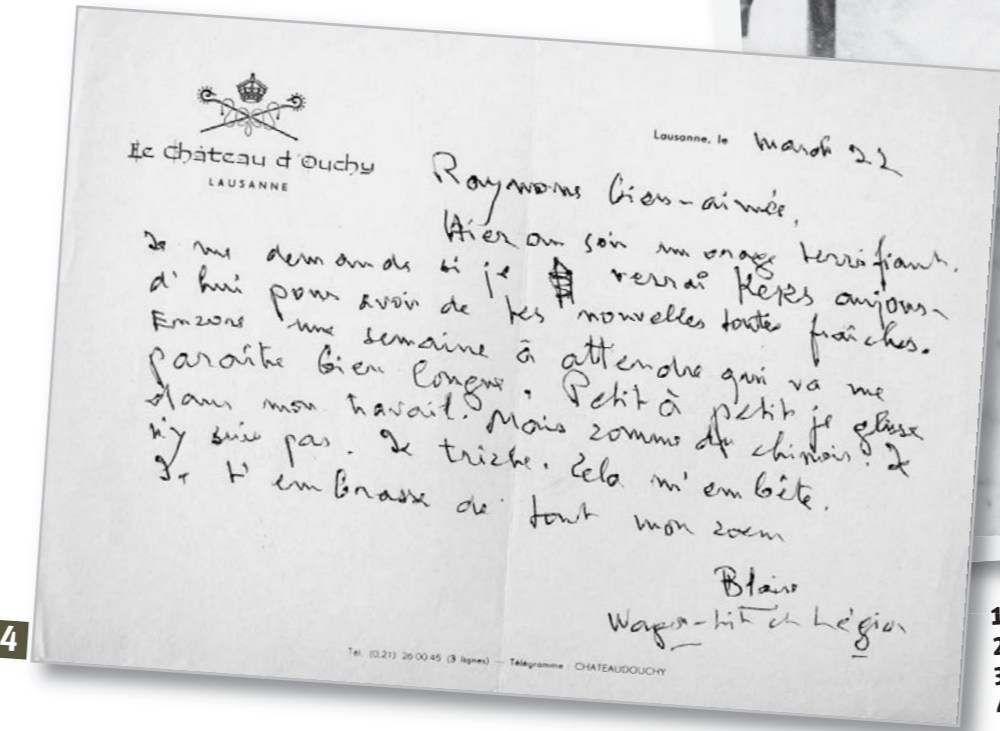 Le Château d'Ouchy
LAUSANNE
Lausanne, le mardi 22
Raymone bien-aimée,
Hier au soir un orage terrifiant.
Je me demande si je verrai Kepes aujour-
d'hui pour avoir de tes nouvelles toutes fraîches.
Encore une semaine à attendre qui va me
paraître bien longue. Petit à petit je glisse
dans mon travail. Mais comme du chinois. Je
n'y suis pas. Je triche. Cela m'embête.
Je t'embrasse de tout mon coeur
Blaise
Wagon-lit et Légion
Tél. (021) 26 00 45 (3 lignes) — Télégramme : CHATEAUDOUCHY
4
1
2
3
4